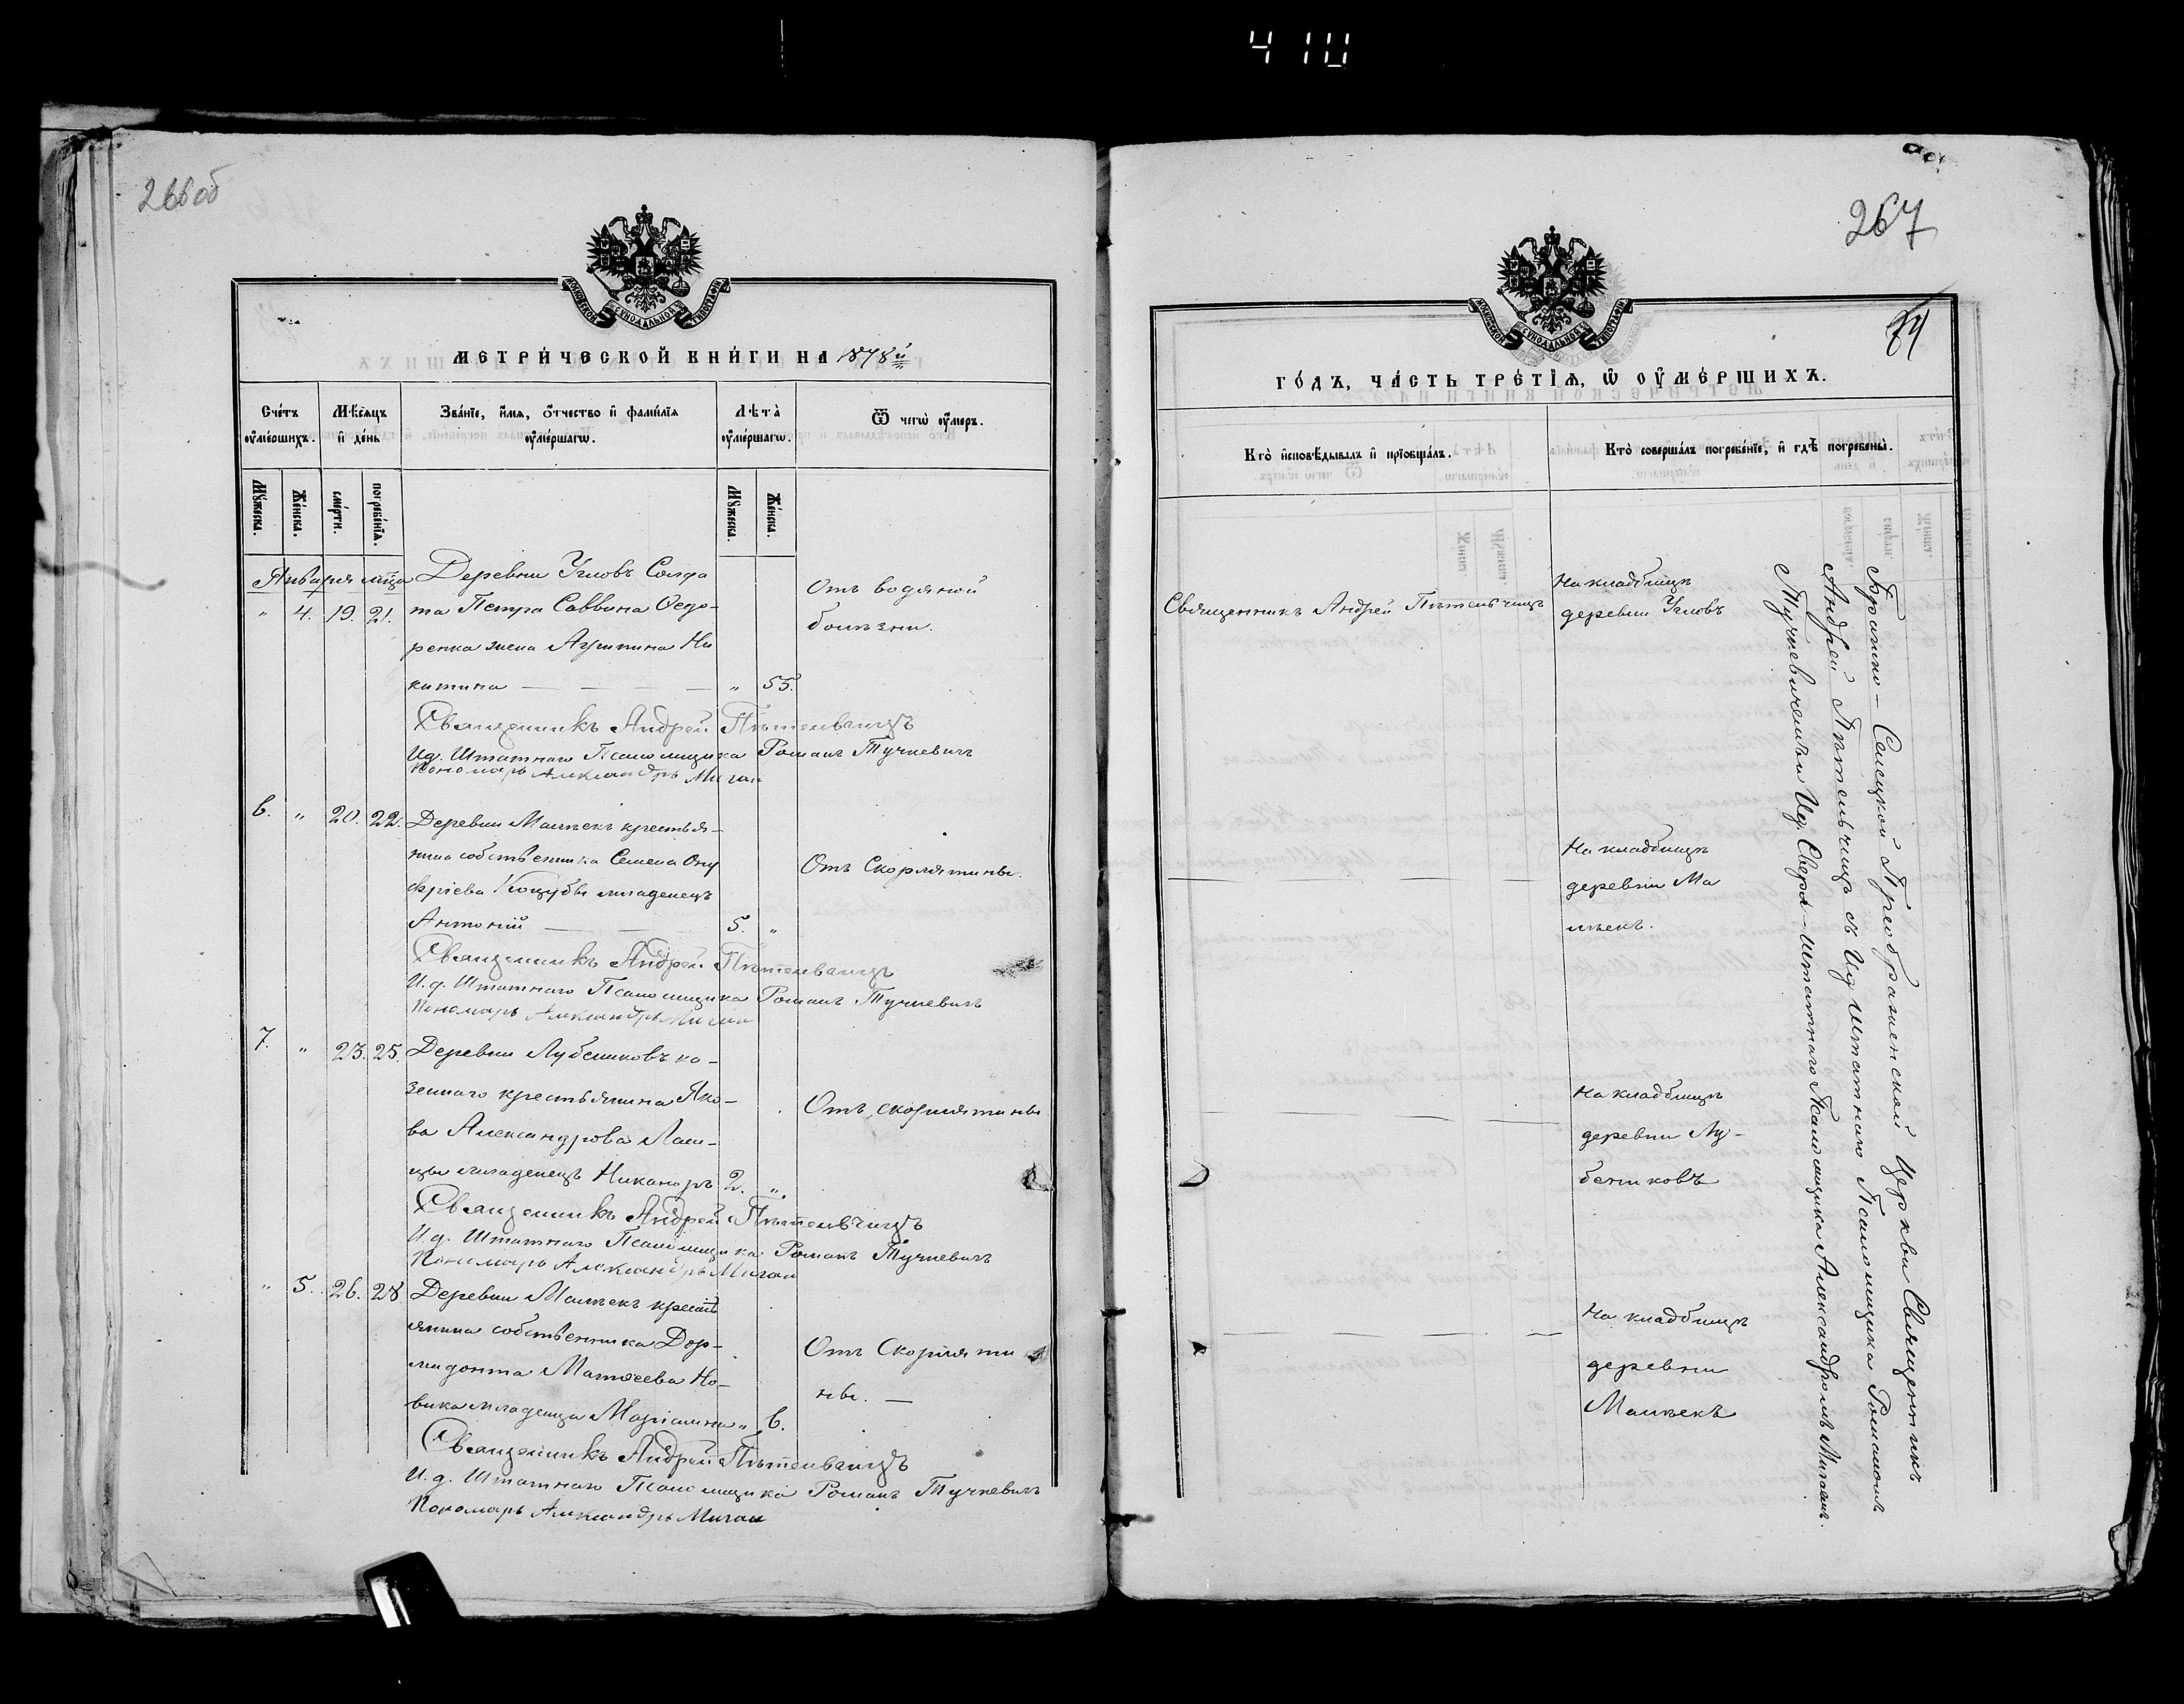 410
266об
МОСКОВСКОЙ СѴНОДАЛЬНОЙ ТИПОГРАФІИ
МЕТРИ́ЧЕСКОЙ КНИ́ГИ НА 1878й
Сче́тъ ᲂу҆ме́ршихъ.
Мѣ́сяцъ и҆ де́нь
Зва́нїе, и҆́мѧ, ѻ҆́тчество и҆ фами́лїѧ ᲂу҆ме́ршагѡ.
Лѣ́та ᲂу҆ме́ршагѡ.
Ѿ чегѡ̀ ᲂу҆́меръ.
Мꙋ́жеска.
Же́нска.
сме́рти.
погребе́нїѧ.
Мꙋ́жеска.
Же́нска.
Января мца
" 4. 19. 21.
Деревни Углов Солда
та Петра Саввина Ѳедо-
ренка жена Агрипина Ни
китина — — — — " 55.
Отъ водяной
болѣзни.
Священникъ Андрей Пѣтельчицъ
И.д. Штатнаго Псаломщика Романъ Тучкевичъ
Пономаръ Александръ Мигаи
6. " 20. 22.
Деревни Малѣекъ крестья-
нина собственника Семена Ону
фріева Коцубы младенецъ
Антоній — — 5. "
Отъ Скорлятины.
Священникъ Андрей Пѣтельчицъ
И.д. Штатнаго Псаломщика Романъ Тучкевичъ
Пономаръ Александръ Мигаи
7. " 23. 25.
Деревни Лубениковъ ка-
зеннаго крестьянина Яко-
ва Александрова
младенецъ Никаноръ 2. "
Отъ скорлятины
Священникъ Андрей Пѣтельчицъ
И.д. Штатнаго Псаломщика Романъ Тучкевичъ
Пономаръ Александръ Мигаи
" 5. 26. 28.
Деревни Малѣекъ крестъ
янина собственника Дор-
мидонта Матѳеева Но-
вика младенца Маріанна " 6.
Отъ Скорляти
ны. —
Священникъ Андрей Пѣтельчицъ
И.д. Штатнаго Псаломщика Романъ Тучкевичъ
Пономаръ Александръ Мигаи
267
МОСКОВСКОЙ СѴНОДАЛЬНОЙ ТИПОГРАФІИ
ГО́ДЪ, ЧА́СТЬ ТРЕ́ТЇѦ, Ѡ҆ ОУ҆МЕ́РШИХЪ.
Кто̀ и҆сповѣ́дывалъ и҆ прїѡбща́лъ.
Кто̀ соверша́лъ погребе́нїе, и҆ гдѣ̀ погребены̀.
Священникъ Андрей Пѣтельчицъ
На кладбищѣ
деревни Угловъ
На кладбищѣ
деревни Ма
лѣекъ.
На кладбищѣ
деревни Лу-
бениковъ
На кладбищѣ
деревни
Малѣекъ
Селецкой Преображенской церкви Священникъ
Андрей Пѣтельчицъ съ И.д. Штатнаго Псаломщика Романомъ
Тучкевичемъ и И.д. Сверх-штатнаго Псаломщика Александромъ Мигаемъ.